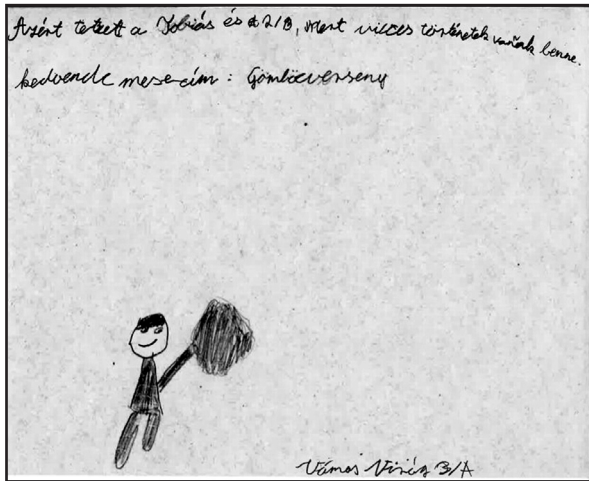 Azért tetszett a Tobiás és a 2/B, mert vicces történetek vannak benne.
kedvenc mesecím: Gombócverseny
Vámos Virág 3/A